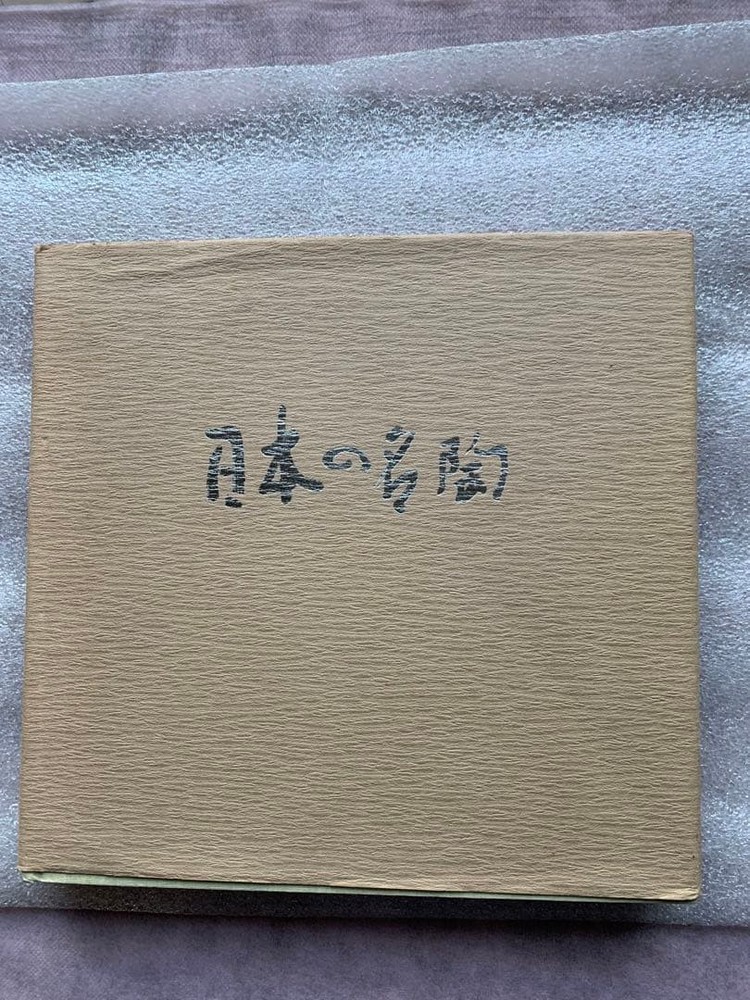 日本の名陶